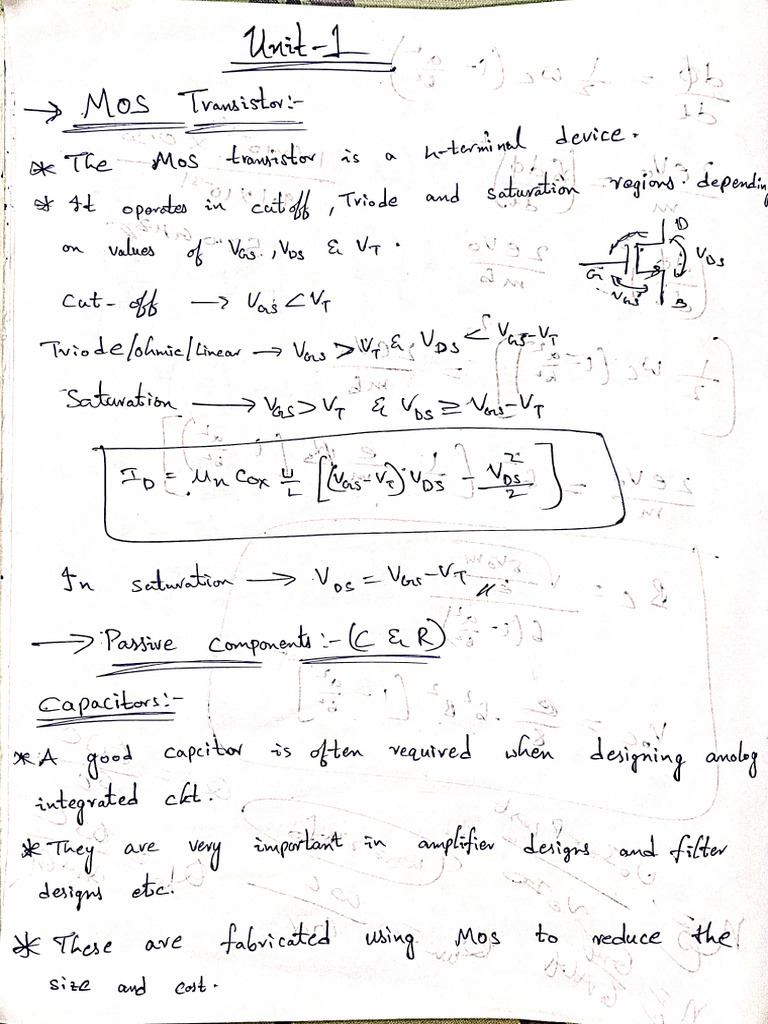 Unit-1
→ MOS Transistor:-
* The MOS transistor is a 4-terminal device.
* It operates in cutoff, Triode and saturation regions depending
on values of VGS, VDS & VT.
D
G
S
B
VDS
VGS
Cut-off → VGS < VT
Triode/ohmic/Linear → VGS > VT & VDS < VGS-VT
Saturation → VGS > VT & VDS ≥ VGS-VT
ID = μn Cox W/L [(VGS-VT) VDS - VDS²/2]
In saturation → VDS = VGS-VT
→ Passive components:- (C & R)
Capacitors:-
* A good capcitor is often required when designing analog
integrated ckt.
* They are very important in amplifier designs and filter
designs etc.
* These are fabricated using MOS to reduce the
size and cost.